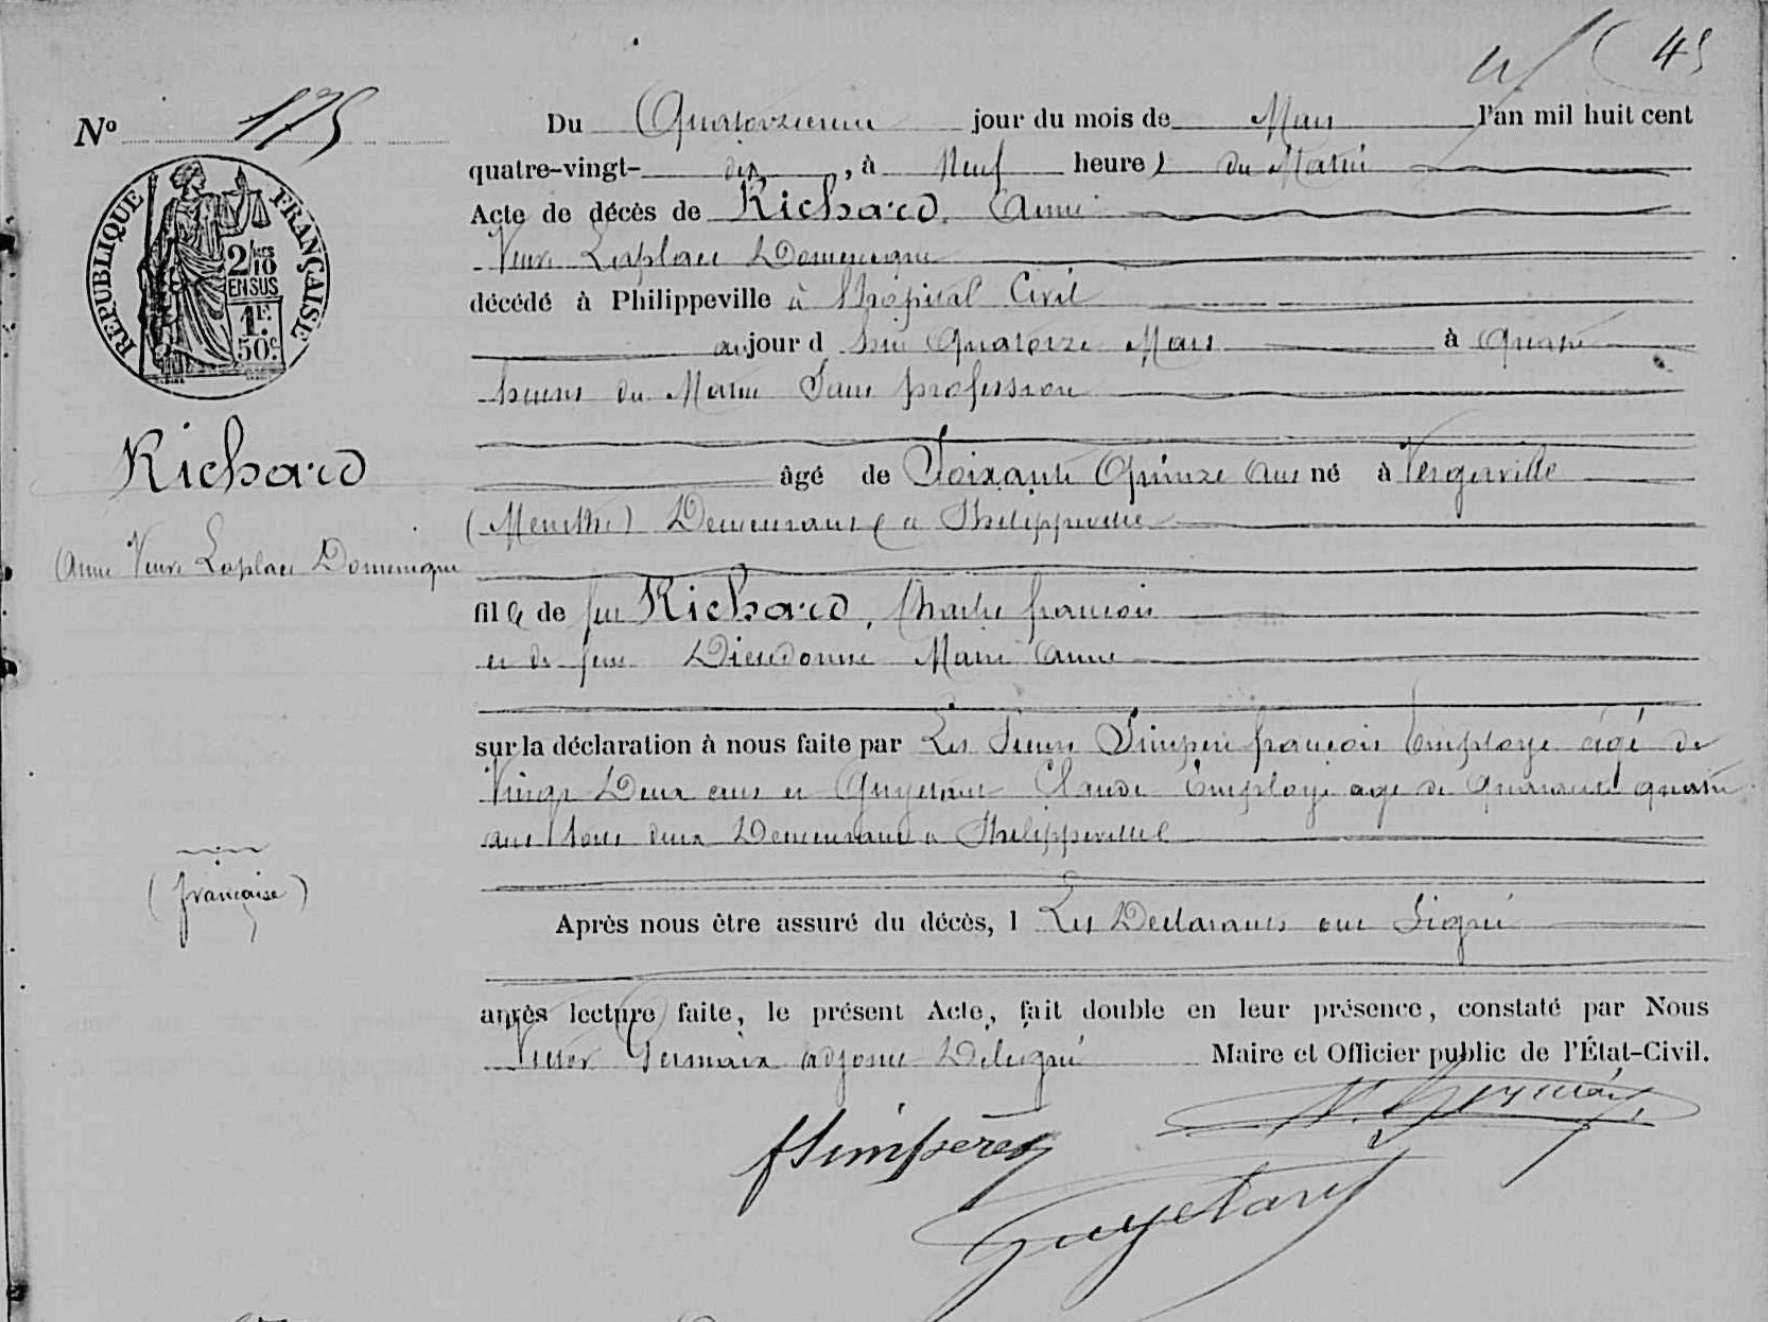 45
Nº 175
Du Quatorzieme jour du mois de Mars l'an mil huit cent
quatre-vingt- dix, à Neuf heures du Matin
Acte de décès de Richard, Anne
Veuve Laplace Domenique
décédé à Philippeville à l'hopital Civil
aujourd hui Quatorze Mars à Quatre
heures du Matin Sans profession
REPUBLIQUE FRANÇAISE
2/10
EN SUS
1F.
50c.
Richard
Anne Veuve Laplace Domenique
âgé de Soixante Quinze ans né à Vergaville
(Meurthe) Demeurant à Philippeville
fille de feu Richard, Charles francois
et de feue Dieudonné Marie Anne
sur la déclaration à nous faite par Les Sieurs Simperé francois Employé agé de
Vingt Deux ans et Guyetant Claude Employé agé de Quarante quatre
ans tous deux Demeurant à Philippeville
(française)
Après nous être assuré du décès, l Les Declarants ont Signé
après lecture faite, le présent Acte, fait double en leur présence, constaté par Nous
Victor Germain adjoint Délégué Maire et Officier public de l'État-Civil.
V. Germain
fSimperé
Guyetant